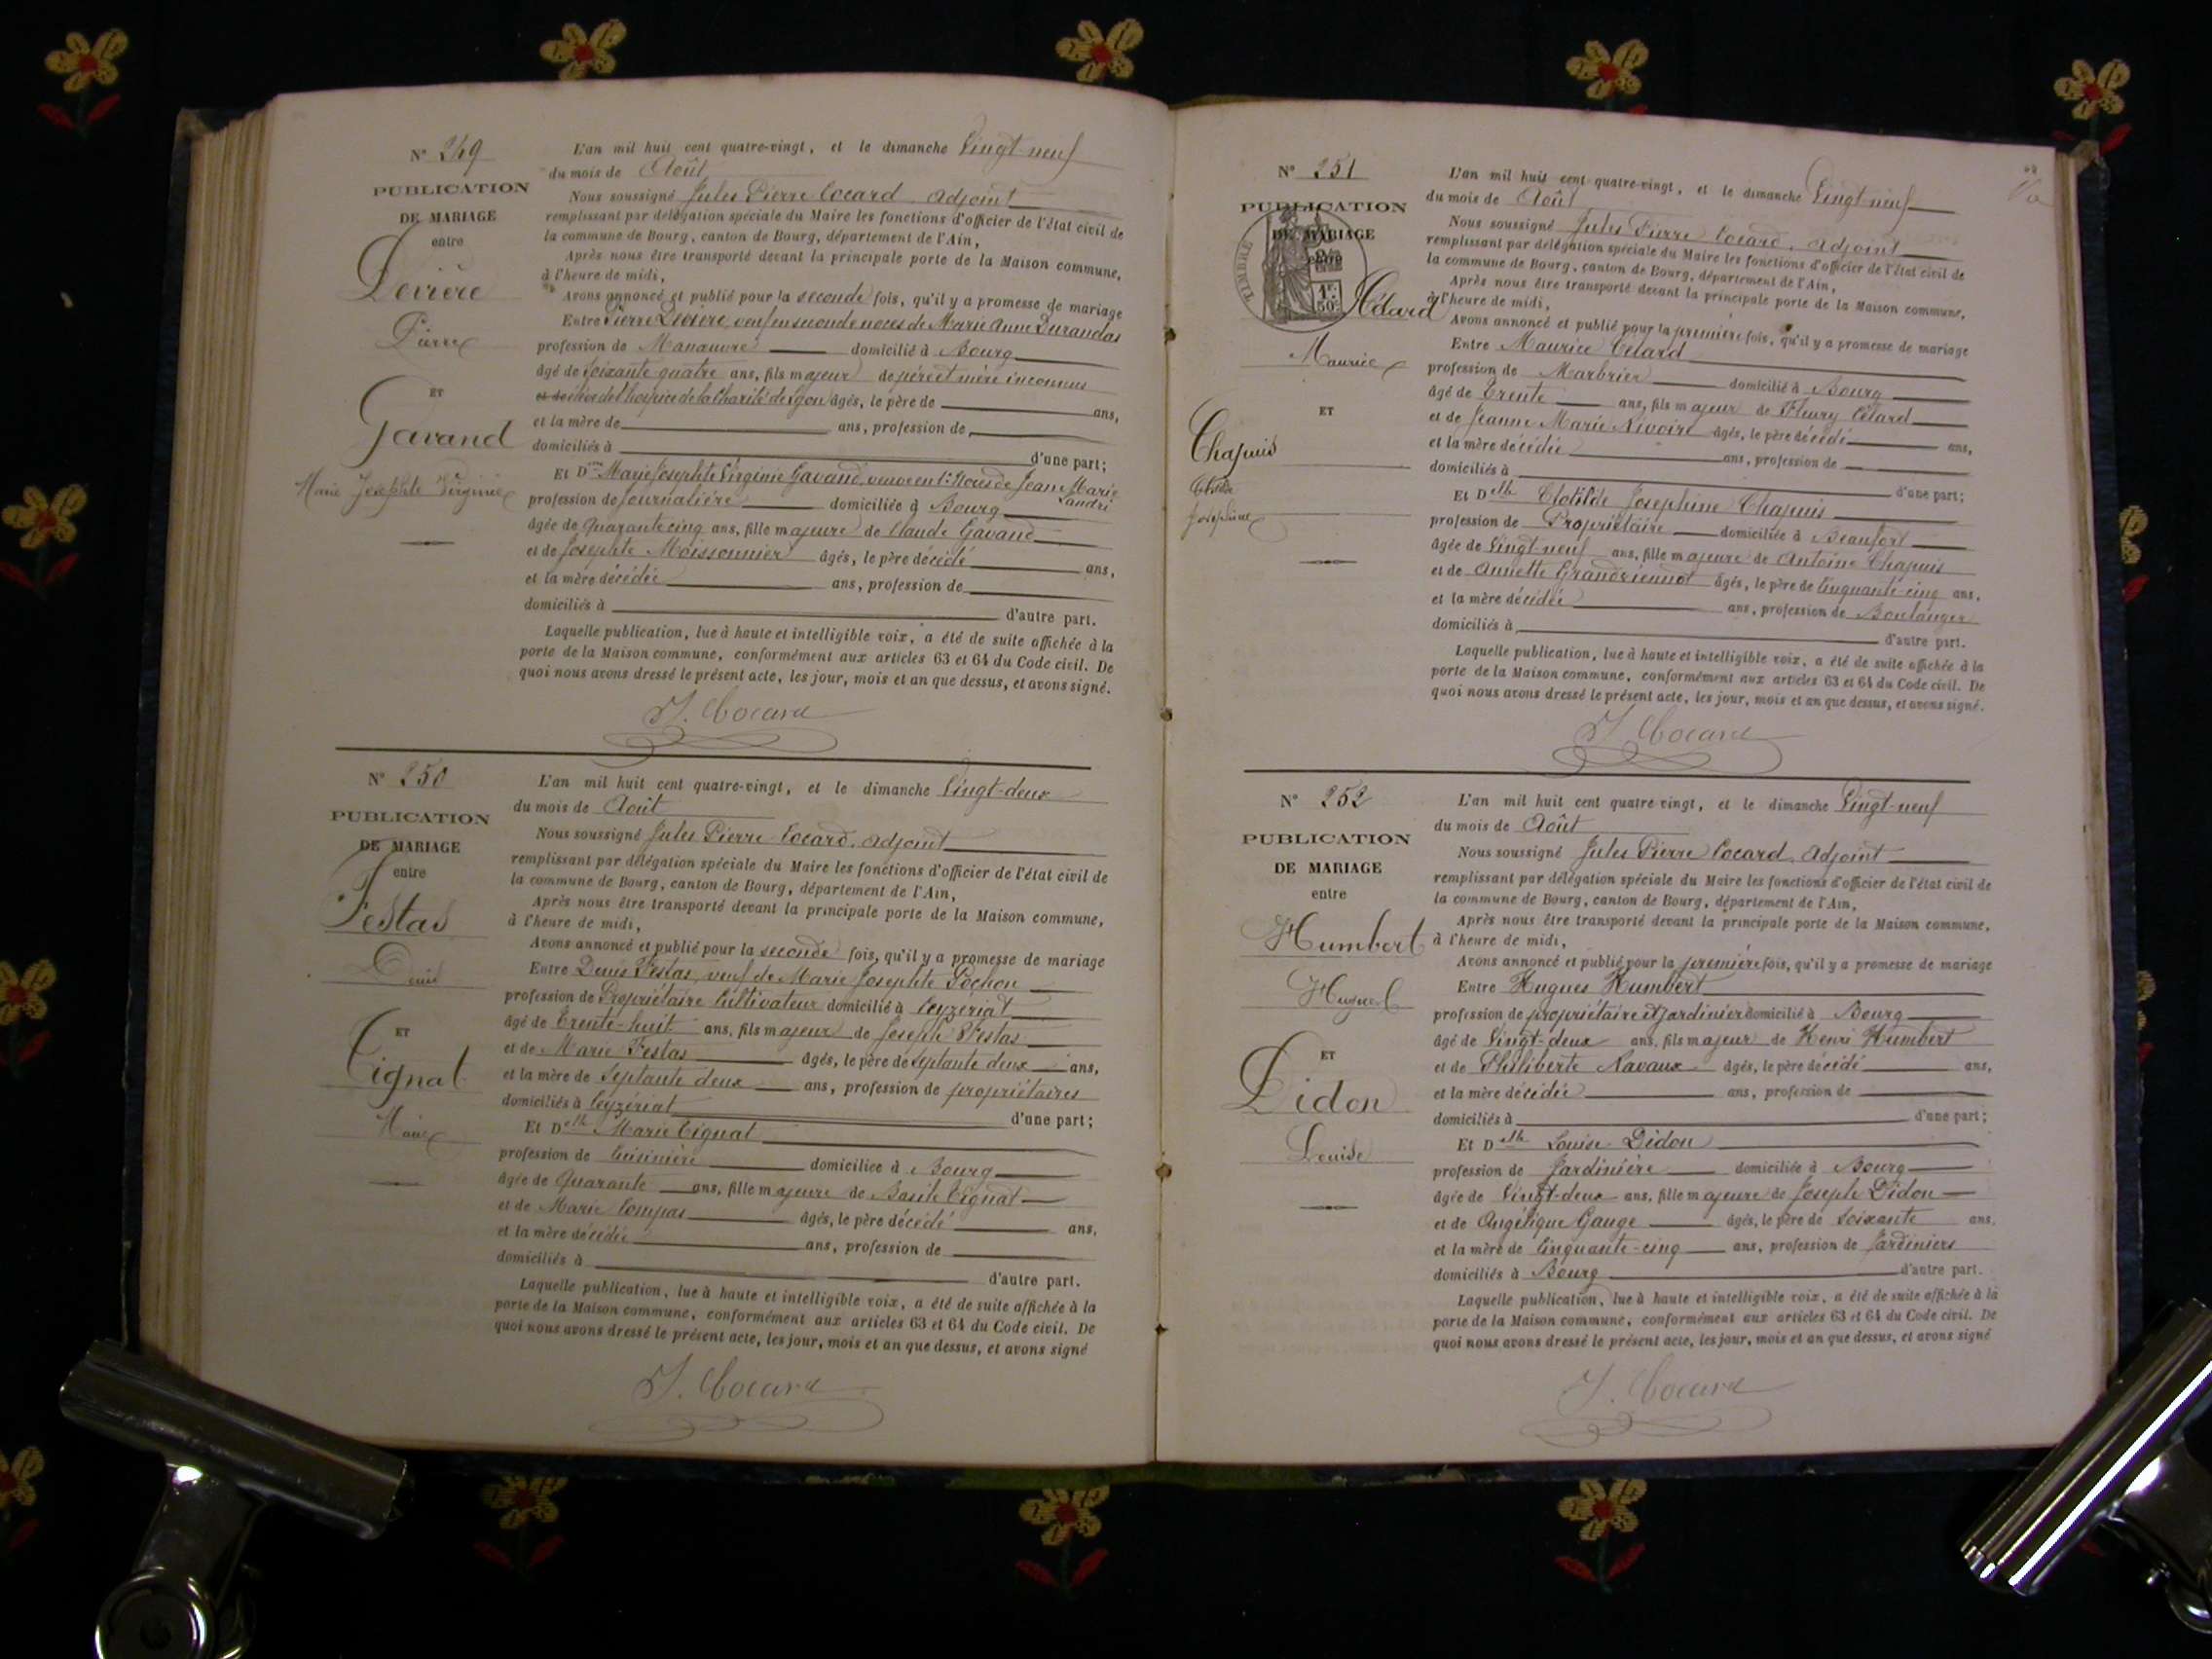 N° 249
PUBLICATION
DE MARIAGE
entre
Pierre
ET
Gavand
Marie Josephte Virginie
L'an mil huit cent quatre-vingt, et le dimanche Vingt neuf
du mois de Août
Nous soussigné Jules Pierre Cocard, adjoint
remplissant par délégation spéciale du Maire les fonctions d'officier de l'état civil de
la commune de Bourg, canton de Bourg, département de l'Ain,
Après nous être transporté devant la principale porte de la Maison commune,
à l'heure de midi,
Avons annoncé et publié pour la seconde fois, qu'il y a promesse de mariage
Entre Pierre veuf en seconde noces de Marie Anne Durandas
profession de Manœuvre domicilié à Bourg
âgé de soixante quatre ans, fils majeur de père et mère inconnus
élève de l'hospice de la Charité de Lyon âgés, le père de ans,
et la mère de ans, profession de
domiciliés à d'une part;
Et Dme Marie Josephte Virginie Gavand, veuve en 1es Noces de Jean Marie
Tandri
profession de Journalière domiciliée à Bourg
âgée de Quarante cinq ans, fille majeure de Claude Gavand
et de Josephte Moissonnier âgés, le père décédé ans,
et la mère décédée ans, profession de
domiciliés à d'autre part.
Laquelle publication, lue à haute et intelligible voix, a été de suite affichée à la
porte de la Maison commune, conformément aux articles 63 et 64 du Code civil. De
quoi nous avons dressé le présent acte, les jour, mois et an que dessus, et avons signé.
J. Cocard
N° 250
PUBLICATION
DE MARIAGE
entre
Festas
Denis
ET
Tignat
Marie
L'an mil huit cent quatre-vingt, et le dimanche Vingt-deux
du mois de Août
Nous soussigné Jules Pierre Cocard, adjoint
remplissant par délégation spéciale du Maire les fonctions d'officier de l'état civil de
la commune de Bourg, canton de Bourg, département de l'Ain,
Après nous être transporté devant la principale porte de la Maison commune,
à l'heure de midi,
Avons annoncé et publié pour la seconde fois, qu'il y a promesse de mariage
Entre Denis Festas, veuf de Marie Josephte Pochon
profession de Propriétaire Cultivateur domicilié à Ceyzériat
âgé de Trente-huit ans, fils majeur de Joseph Festas
et de Marie Festas âgés, le père de septante deux ans,
et la mère de Septante deux ans, profession de propriétaires
domiciliés à Ceyzériat d'une part;
Et Delle Marie Tignat
profession de Cuisinière domiciliée à Bourg
âgée de Quarante ans, fille majeure de Basile Tignat
et de Marie Compas âgés, le père décédé ans,
et la mère décédée ans, profession de
domiciliés à d'autre part.
Laquelle publication, lue à haute et intelligible voix, a été de suite affichée à la
porte de la Maison commune, conformément aux articles 63 et 64 du Code civil. De
quoi nous avons dressé le présent acte, les jour, mois et an que dessus, et avons signé
J. Cocard
N° 251
PUBLICATION
DE MARIAGE
entre
TIMBRE
1F.
50c
Célard
Maurice
ET
Chapuis
Clotilde
Josephine
L'an mil huit cent quatre-vingt, et le dimanche Vingt-neuf
du mois de Août
Nous soussigné Jules Pierre Cocard, adjoint
remplissant par délégation spéciale du Maire les fonctions d'officier de l'état civil de
la commune de Bourg, canton de Bourg, département de l'Ain,
Après nous être transporté devant la principale porte de la Maison commune,
à l'heure de midi,
Avons annoncé et publié pour la première fois, qu'il y a promesse de mariage
Entre Maurice Célard
profession de Marbrier domicilié à Bourg
âgé de Trente ans, fils majeur de Fleury Célard
et de Jeanne Marie Nivoire âgés, le père décédé ans,
et la mère décédée ans, profession de
domiciliés à d'une part;
Et Delle Clotilde Josephine Chapuis
profession de Propriétaire domiciliée à Beaufort
âgée de Vingt-neuf ans, fille majeure de Antoine Chapuis
et de Annette âgés, le père de Cinquante-cinq ans,
et la mère décédée ans, profession de Boulanger
domiciliés à d'autre part.
Laquelle publication, lue à haute et intelligible voix, a été de suite affichée à la
porte de la Maison commune, conformément aux articles 63 et 64 du Code civil. De
quoi nous avons dressé le présent acte, les jour, mois et an que dessus, et avons signé.
J. Cocard
N° 252
PUBLICATION
DE MARIAGE
entre
Humbert
Hugues
ET
Didon
Louise
L'an mil huit cent quatre-vingt, et le dimanche Vingt-neuf
du mois de Août
Nous soussigné Jules Pierre Cocard, Adjoint
remplissant par délégation spéciale du Maire les fonctions d'officier de l'état civil de
la commune de Bourg, canton de Bourg, département de l'Ain,
Après nous être transporté devant la principale porte de la Maison commune,
à l'heure de midi,
Avons annoncé et publié pour la première fois, qu'il y a promesse de mariage
Entre Hugues Humbert
profession de propriétaire et jardinier domicilié à Bourg
âgé de Vingt-deux ans, fils majeur de Henri Humbert
et de Philiberte Navaux âgés, le père décédé ans,
et la mère décédée ans, profession de
domiciliés à d'une part;
Et Delle Louise Didon
profession de Jardinière domiciliée à Bourg
âgée de Vingt-deux ans, fille majeure de Joseph Didon
et de Angélique Gauge âgés, le père de Soixante ans,
et la mère de Cinquante-cinq ans, profession de Jardiniers
domiciliés à Bourg d'autre part.
Laquelle publication, lue à haute et intelligible voix, a été de suite affichée à la
porte de la Maison commune, conformément aux articles 63 et 64 du Code civil. De
quoi nous avons dressé le présent acte, les jour, mois et an que dessus, et avons signé
J. Cocard